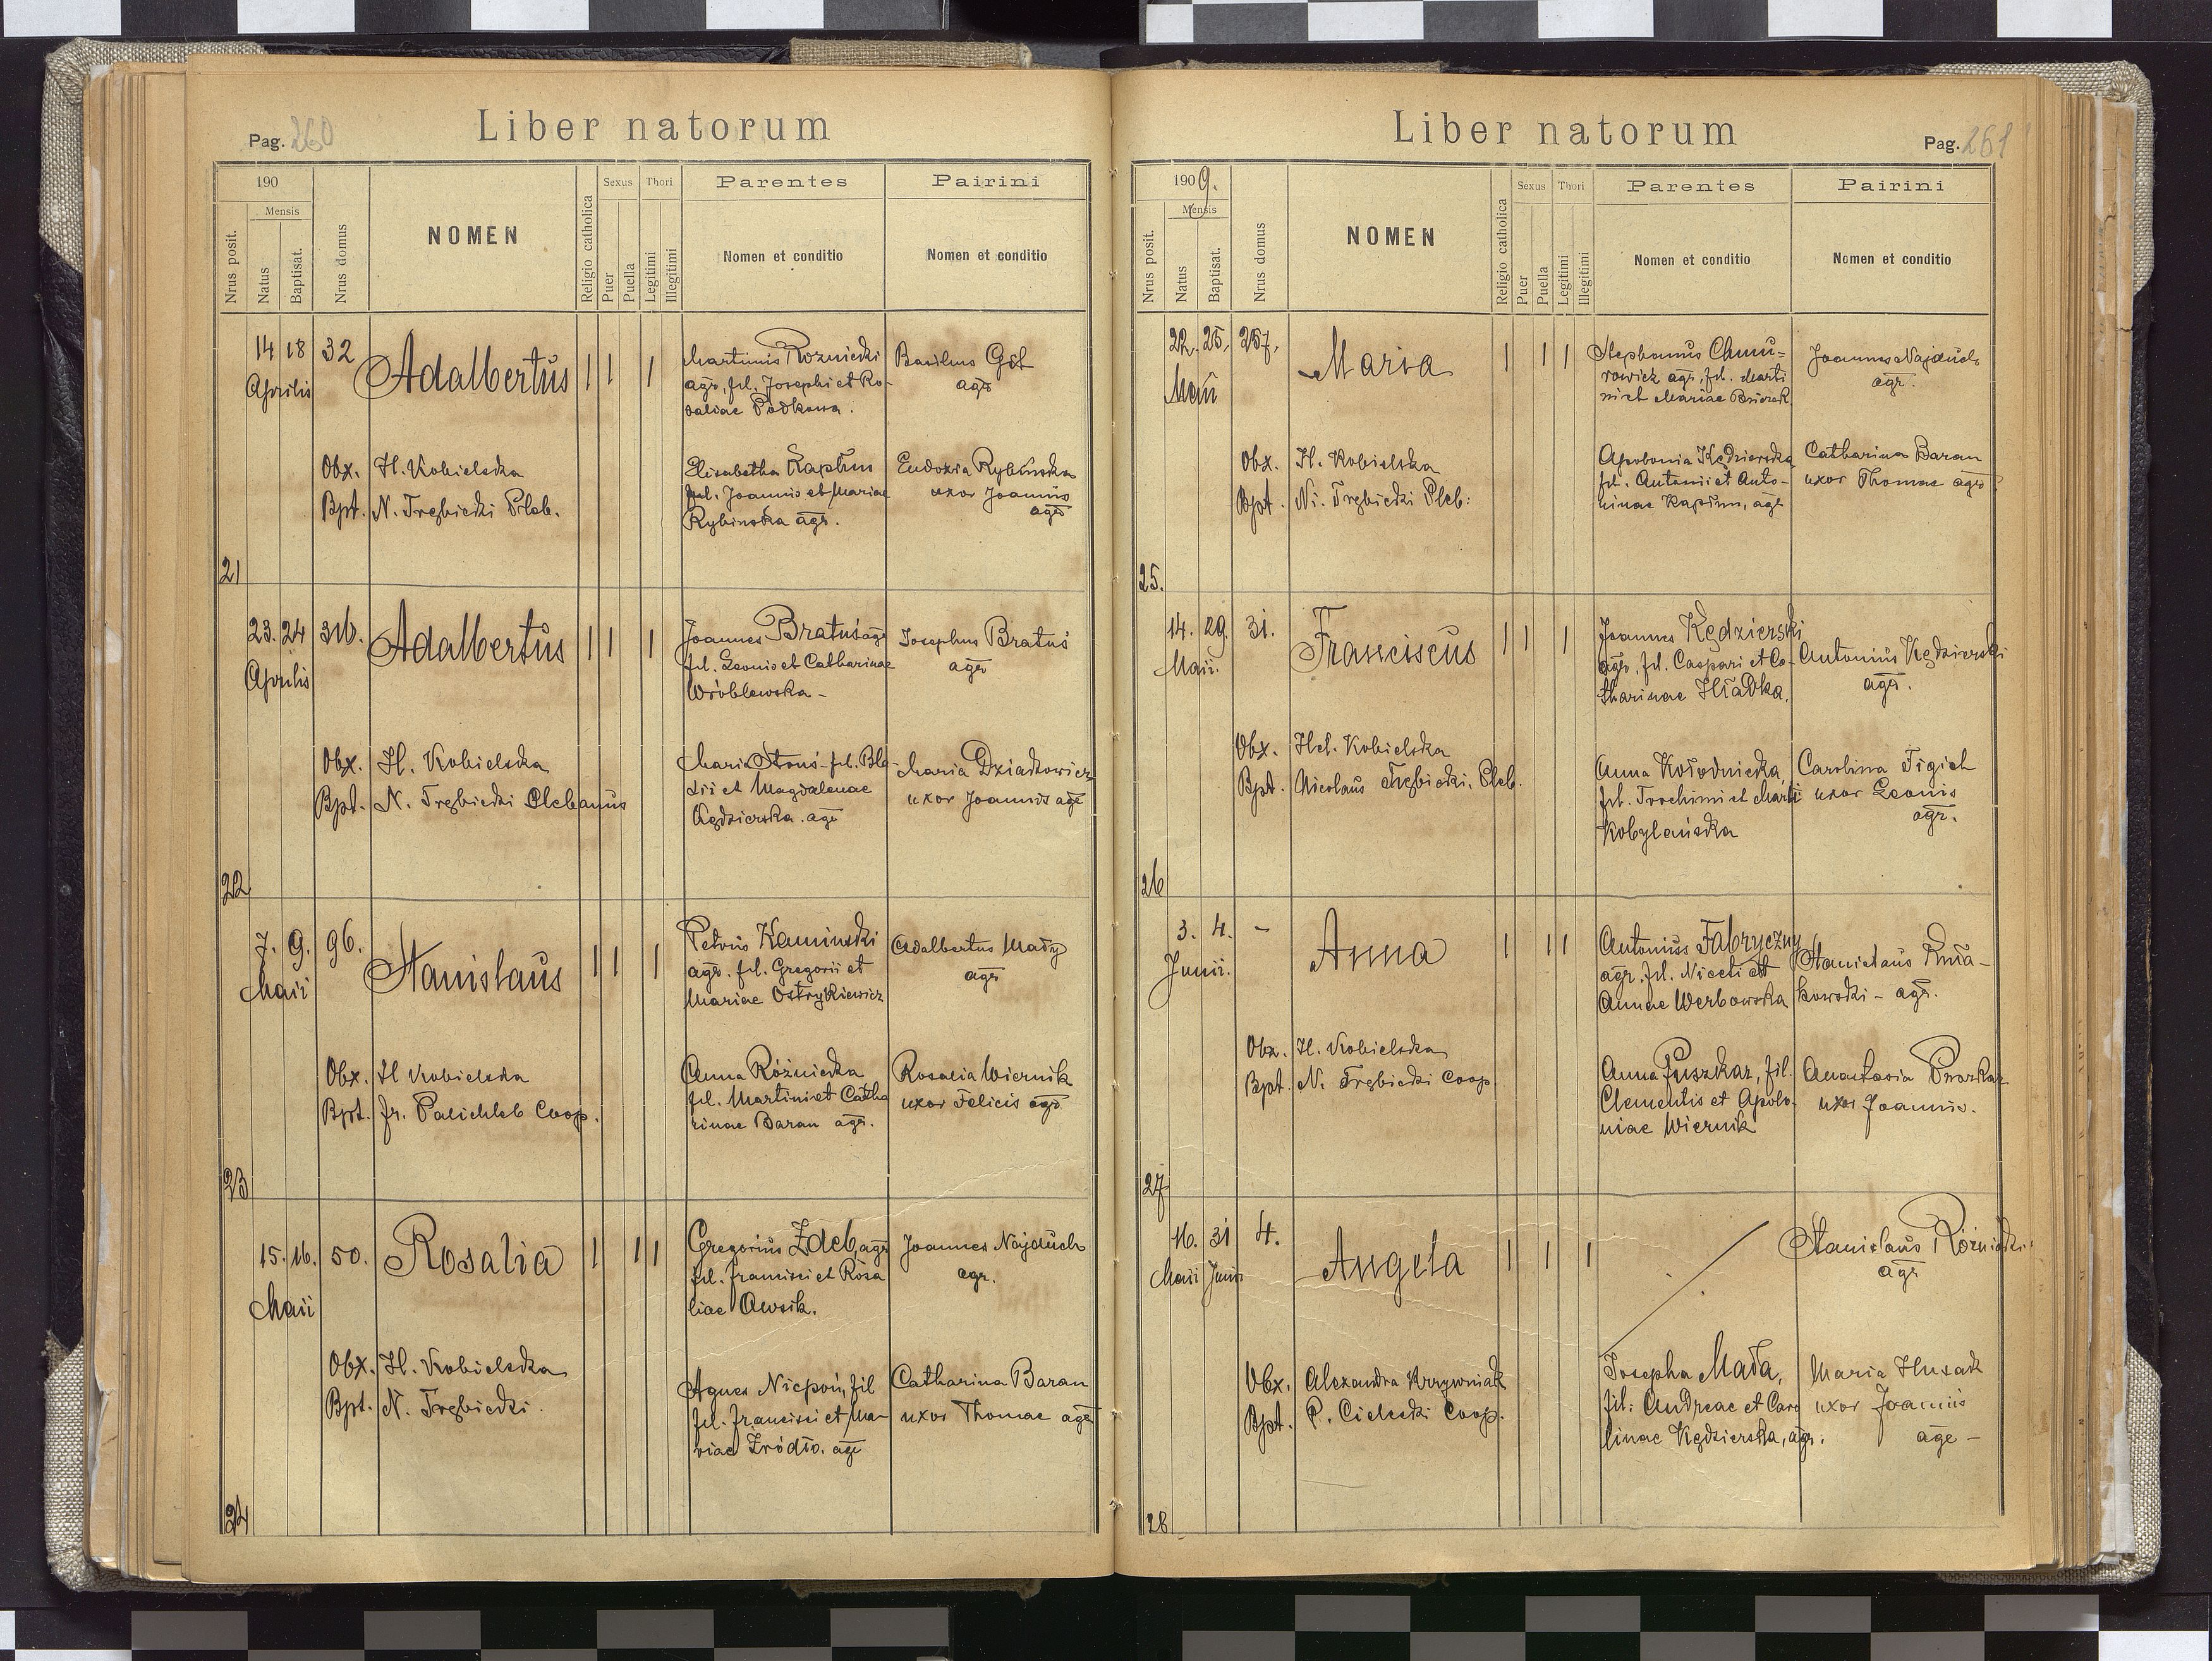 Pag. 260
Liber natorum
190
Mensis
Nrus posit.
Natus
Baptisat.
Nrus domus
NOMEN
Religio catholica
Sexus
Puer
Puella
Thori
Legitimi
Illegitimi
Parentes
Nomen et conditio
Pairini
Nomen et conditio
21
14 18 32
Aprilis
Adalbertus
Martinus Róznicki
agr, fil. Josephi et Ro-
saliae Podkowa.
Basilius Gił
agr
Obx. H. Kobielska
Bpt. N. Trębicki Pleb.
Elisabetha Kapłun
fil. Joannis et Mariae
Rybinska agr.
Eudoxia Rybinska
uxor Joannis
agr
22
23. 24
Aprilis
Adalbertus
Joannes Bratuś agr
fil. Leonis et Catharinae
Wróblewska -
Josephus Bratuś
agr
Obx. H. Kobielska
Bpt. N. Trębicki Plebanus
Maria Stouś - fil. Bla-
sii et Magdalenae
agr
Maria Dziadkowicz
uxor Joannis agr
23
7. 9. 96.
Maii
Stanislaus
Petrus Kaminski
agr. fil. Gregorii et
Mariae Ostrykiewicz
Adalbertus Mady
agr
Obx. H Kobielska
Bpt. fr. Palichleb Coop.
Anna Róźnicka
fil. Martini et Catha
rinae Baran agr.
Rosalia Wiernik
uxor Felicis agr
24
15. 16. 50.
Maii
Rosalia
Gregorius Zdeb, agr
fil. Francisci et Rosa
liae Owsik.
Joannes Najduch
agr.
Obx. H. Kobielska
Bpt. N. Trębicki.
Agnes Niepoń, fil
fil. Francisci et Ma-
riae Zródło. agr
Catharina Baran
uxor Thomae agr
Liber natorum
Pag. 261
1909.
Mensis
Nrus posit.
Natus
Baptisat.
Nrus domus
NOMEN
Religio catholica
Sexus
Puer
Puella
Thori
Legitimi
Illegitimi
Parentes
Nomen et conditio
Pairini
Nomen et conditio
25.
22. 25. 257.
Maii
Maria
Stephanus Chmu-
rowicz agr, fil. Marti
ni et Mariae
Joannes Najduch
agr.
Obx. H. Kobielska
Bpt. Ni. Trębicki Pleb:
Apolonia Kędzierska
fil. Antoni et Anto-
ninae Kapłun, agr
Catharina Baran
uxor Thomae agr
26
14. 29. 31.
Maii.
Franciscus
Joannes Kędzierski
agr, fil. Caspari et Ca-
tharinae Hładka.
Antonius Kędzierski
agr.
Obx. Hel. Kobielska
Bpt. Nicolaus Trębicki, Pleb.
Anna Kołodnicka,
fil. Trochimi et Marti
Kobylańska
Carolina Figiel
uxor Leonis
agr.
27
3. 4. -
Junii.
Anna
Antonius Fabryczny
agr. fil. Niceti et
Annae Werbowska
Stanislaus
kowski - agr.
Obx. H. Kobielska
Bpt. N. Trębicki Coop
Anna Puszkar, fil.
Clementis et Apolo-
niae Wiernik
Anastasia
uxor Joannis.
28
16. 31 4.
Maii Junii
Angela
Stanislaus Róznicki
agr
Obx. Alexandra Krzywniak
Bpt. P. Cielecki Coop.
Josepha Mała,
fil: Andreae et Caro
linae Kędzierska, agr.
Maria Husak
uxor Joannis
agr -